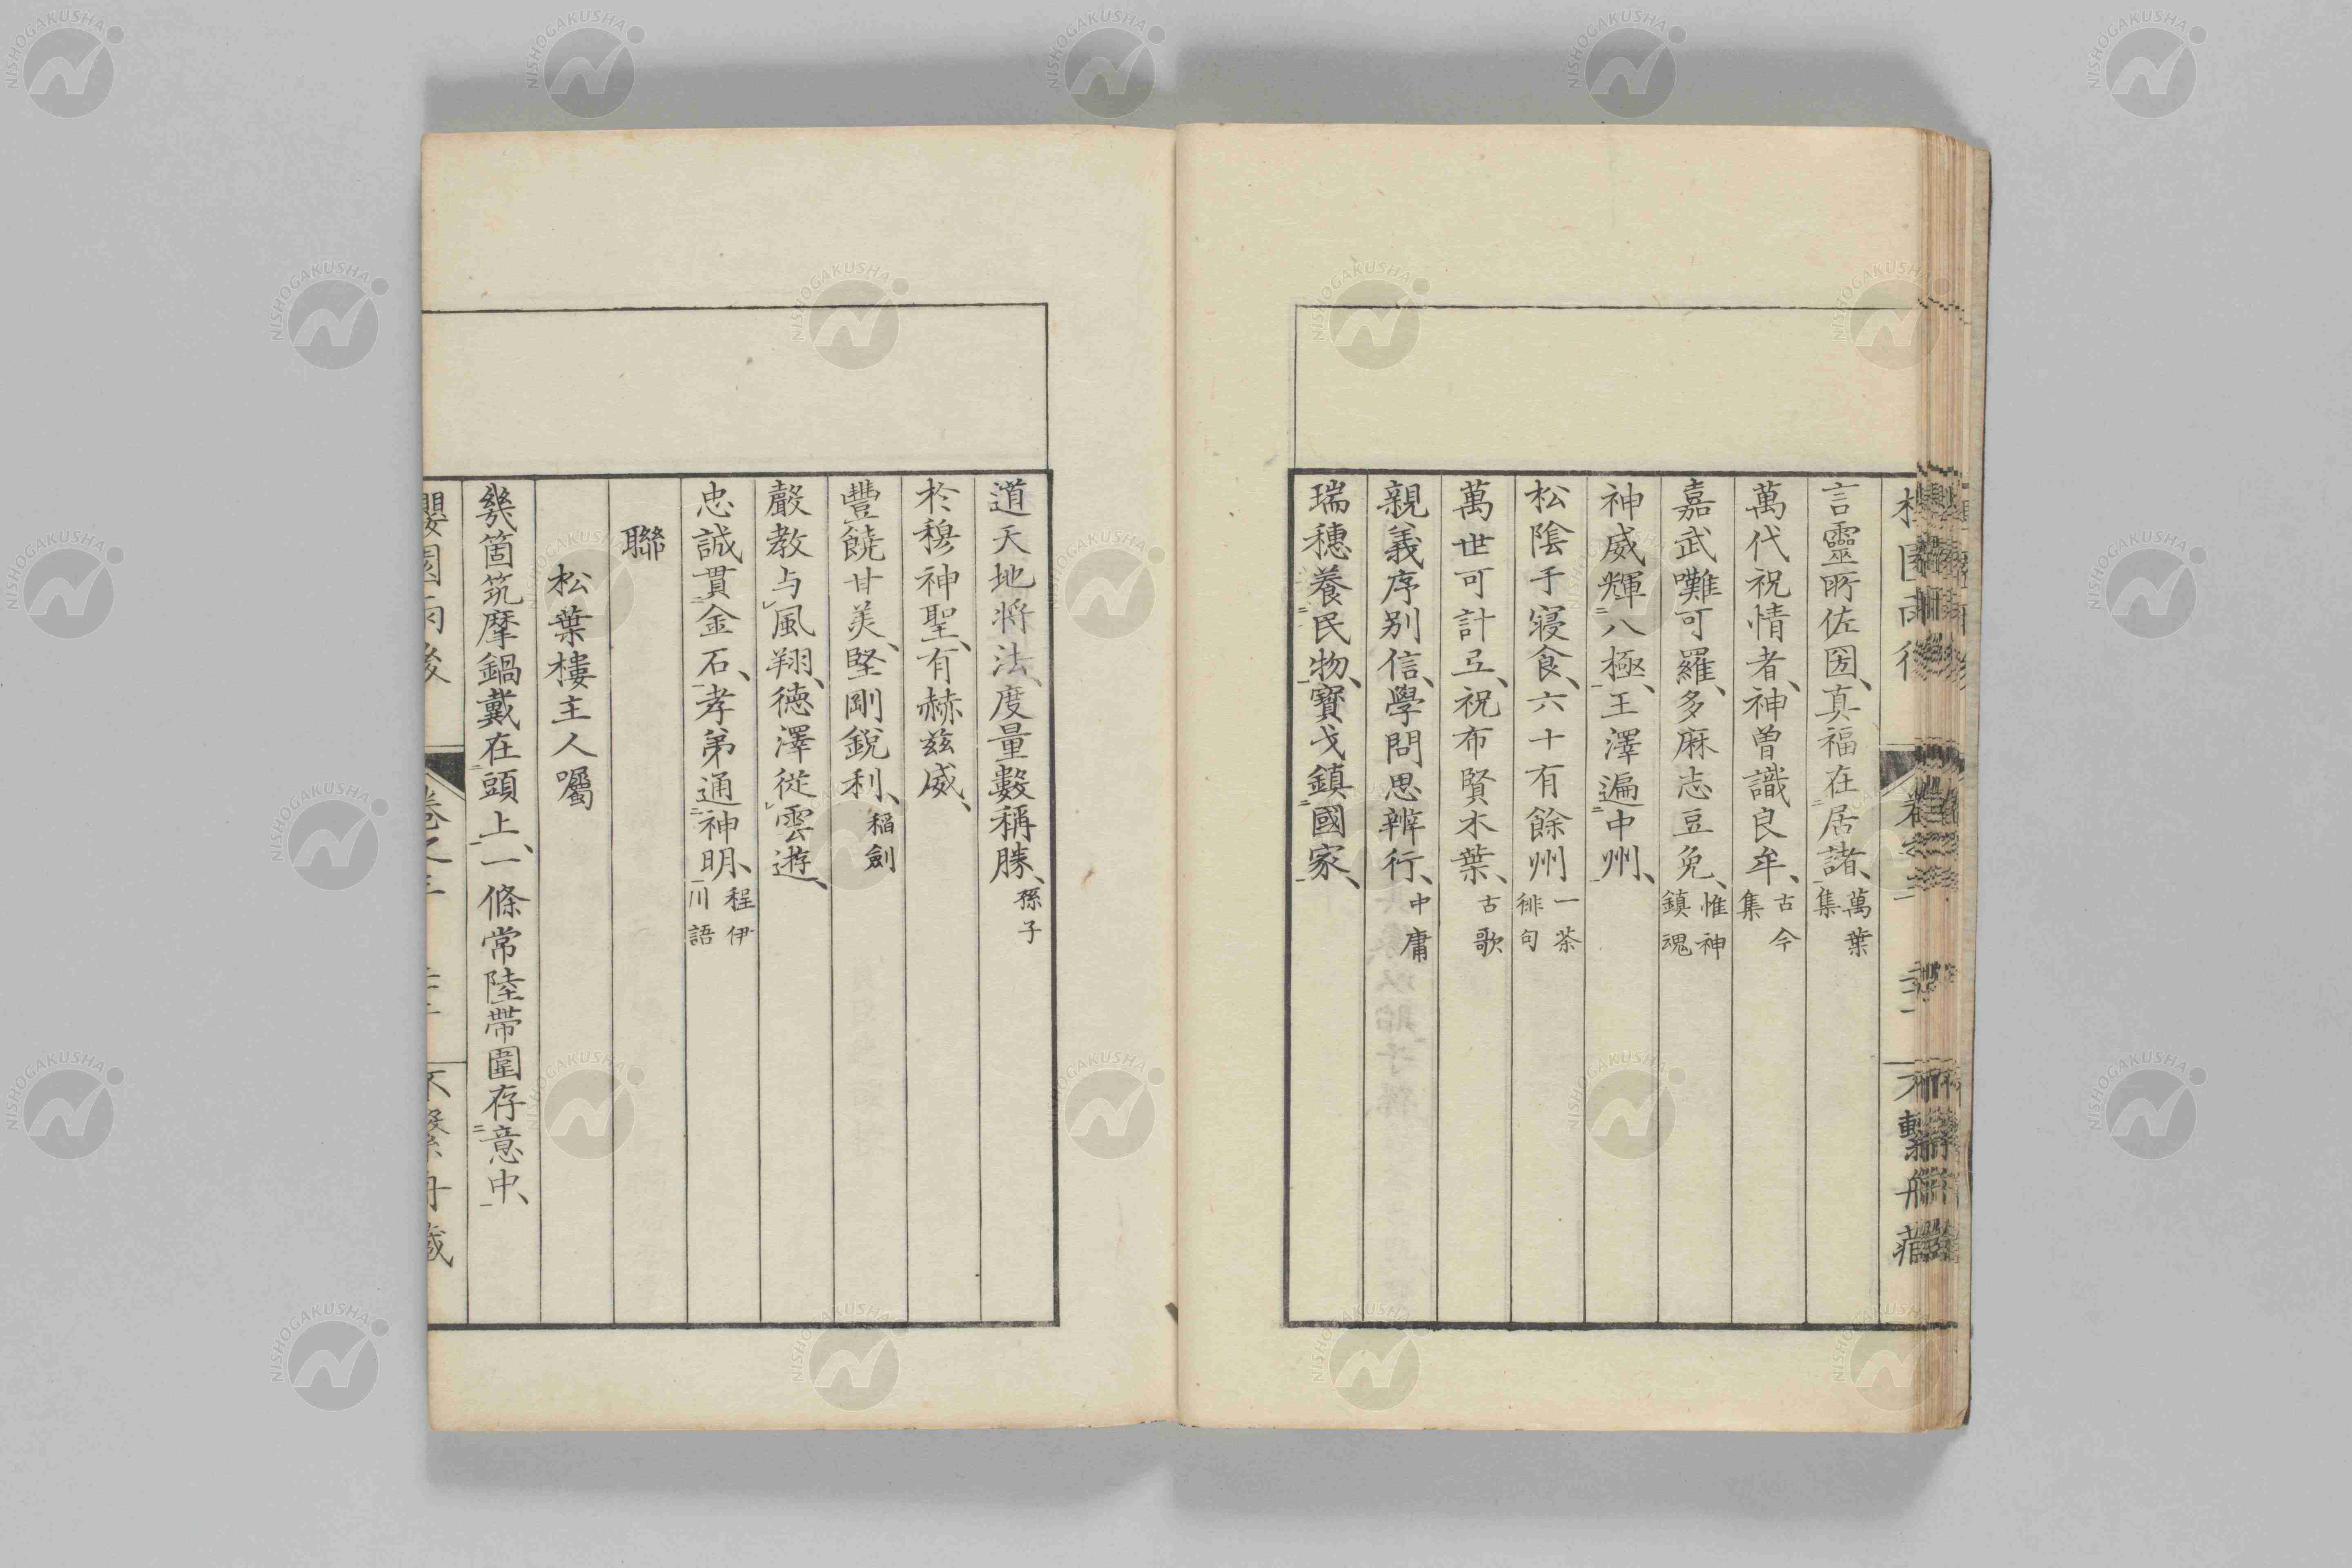 言靈所佐国、真福在居諸、萬葉集
萬代祝情者、神曽識良牟、古今集
嘉武嚈可羅、多麻志豆免、惟神鎮魂
神威輝八極、王澤遍中州、
松陰手寝食、六十有餘州一茶徘句
萬世可計弖、祝布賢木葉、古歌
親義序别信、學問思辨行、中庸
瑞穗養民物、寳戈鎮國家、
道天地将法、度量數稱勝、孫子
於穆神聖、有赫玆威、
豐饒甘美、堅剛銳利、稲劍
嚴教与風翔、徳澤從雲遊、
忠誠貫金石、孝弟通神明、程伊川語
聯
松葉樓主人囑
幾箇筑摩鍋戴在頭上、一條常陸帶圍存意中、
NISHOGAKUSHA